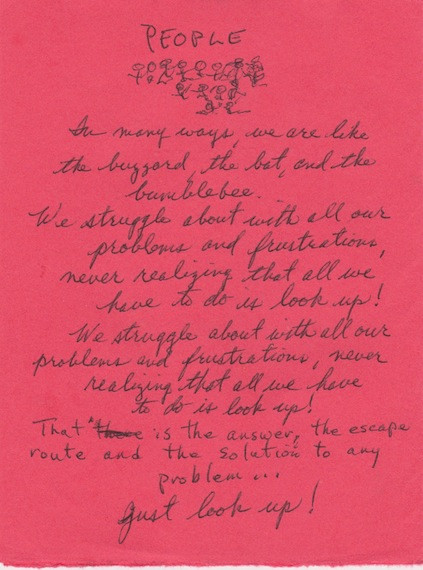 PEOPLE
In many ways, we are like
the buzzard, the bat, and the
bumblebee.
We struggle about with all our
problems and frustrations,
never realizing that all we
have to do is look up!
We struggle about with all our
problems and frustrations, never
realizing that all we have
to do is look up!
That's is the answer, the escape
route and the solution to any
problem...
Just look up!